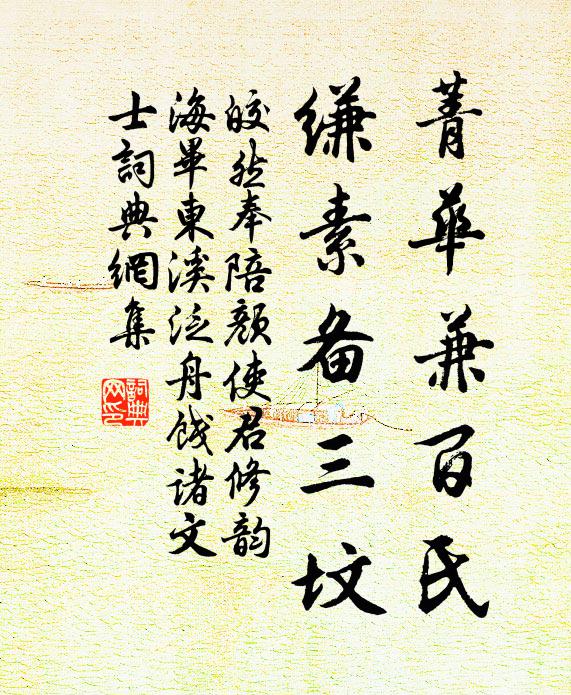 菁華兼百氏
縑素备三坟
皎然奉陪颜使君修韵
海毕東溪泛舟饯诸文
士詞典網集
詞典
网印